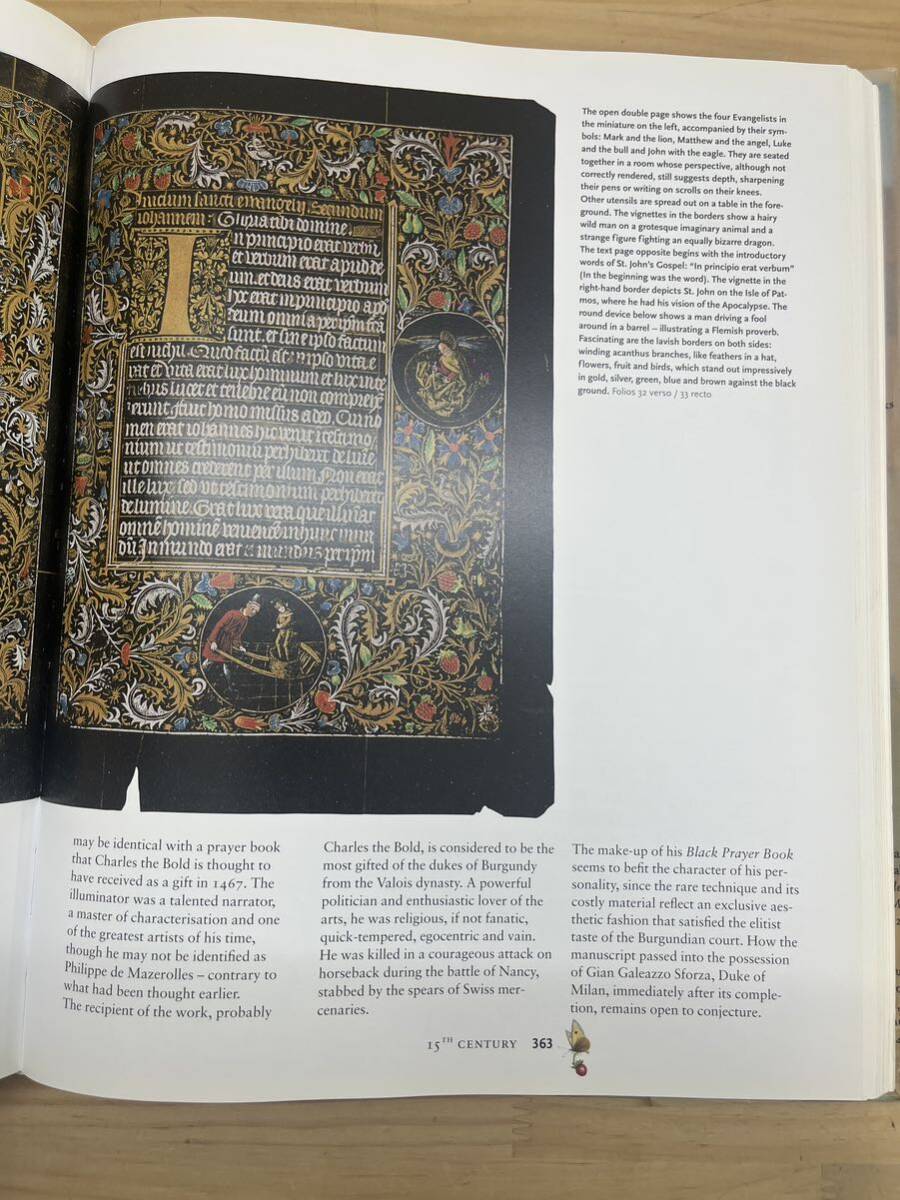 Inicium sancti evangelii Secundum
iohannem: Gloria tibi domine.
In principio erat verbū
et verbum erat apud de
um. et deus erat verbum
erat in principio apd
deum omnia per ipm fcā
sunt. et sine ipso factum
est nichil. Quod factū est in ipso vita e
rat et vita erat lux hominum et lux in te
nebris lucet et tenebre eū non compreh
erunt. fuit homo missus a deo. Cui no
men erat iohannes hic venit i testimo
nium ut testimoniū perhiberet de lumīe
ut omnes crederent per illum. Non erat
ille lux. sed vt testimonium perhiberet
de lumine. Erat lux vera que illumīat
omnē hominē venientē in hunc mun
dū. In mundo erat et mundus per ipm
The open double page shows the four Evangelists in
the miniature on the left, accompanied by their sym-
bols: Mark and the lion, Matthew and the angel, Luke
and the bull and John with the eagle. They are seated
together in a room whose perspective, although not
correctly rendered, still suggests depth, sharpening
their pens or writing on scrolls on their knees.
Other utensils are spread out on a table in the fore-
ground. The vignettes in the borders show a hairy
wild man on a grotesque imaginary animal and a
strange figure fighting an equally bizarre dragon.
The text page opposite begins with the introductory
words of St. John's Gospel: "In principio erat verbum"
(In the beginning was the word). The vignette in the
right-hand border depicts St. John on the Isle of Pat-
mos, where he had his vision of the Apocalypse. The
round device below shows a man driving a fool
around in a barrel – illustrating a Flemish proverb.
Fascinating are the lavish borders on both sides:
winding acanthus branches, like feathers in a hat,
flowers, fruit and birds, which stand out impressively
in gold, silver, green, blue and brown against the black
ground. Folios 32 verso / 33 recto
may be identical with a prayer book
that Charles the Bold is thought to
have received as a gift in 1467. The
illuminator was a talented narrator,
a master of characterisation and one
of the greatest artists of his time,
though he may not be identified as
Philippe de Mazerolles – contrary to
what had been thought earlier.
The recipient of the work, probably
Charles the Bold, is considered to be the
most gifted of the dukes of Burgundy
from the Valois dynasty. A powerful
politician and enthusiastic lover of the
arts, he was religious, if not fanatic,
quick-tempered, egocentric and vain.
He was killed in a courageous attack on
horseback during the battle of Nancy,
stabbed by the spears of Swiss mer-
cenaries.
The make-up of his Black Prayer Book
seems to befit the character of his per-
sonality, since the rare technique and its
costly material reflect an exclusive aes-
thetic fashion that satisfied the elitist
taste of the Burgundian court. How the
manuscript passed into the possession
of Gian Galeazzo Sforza, Duke of
Milan, immediately after its comple-
tion, remains open to conjecture.
15TH CENTURY 363